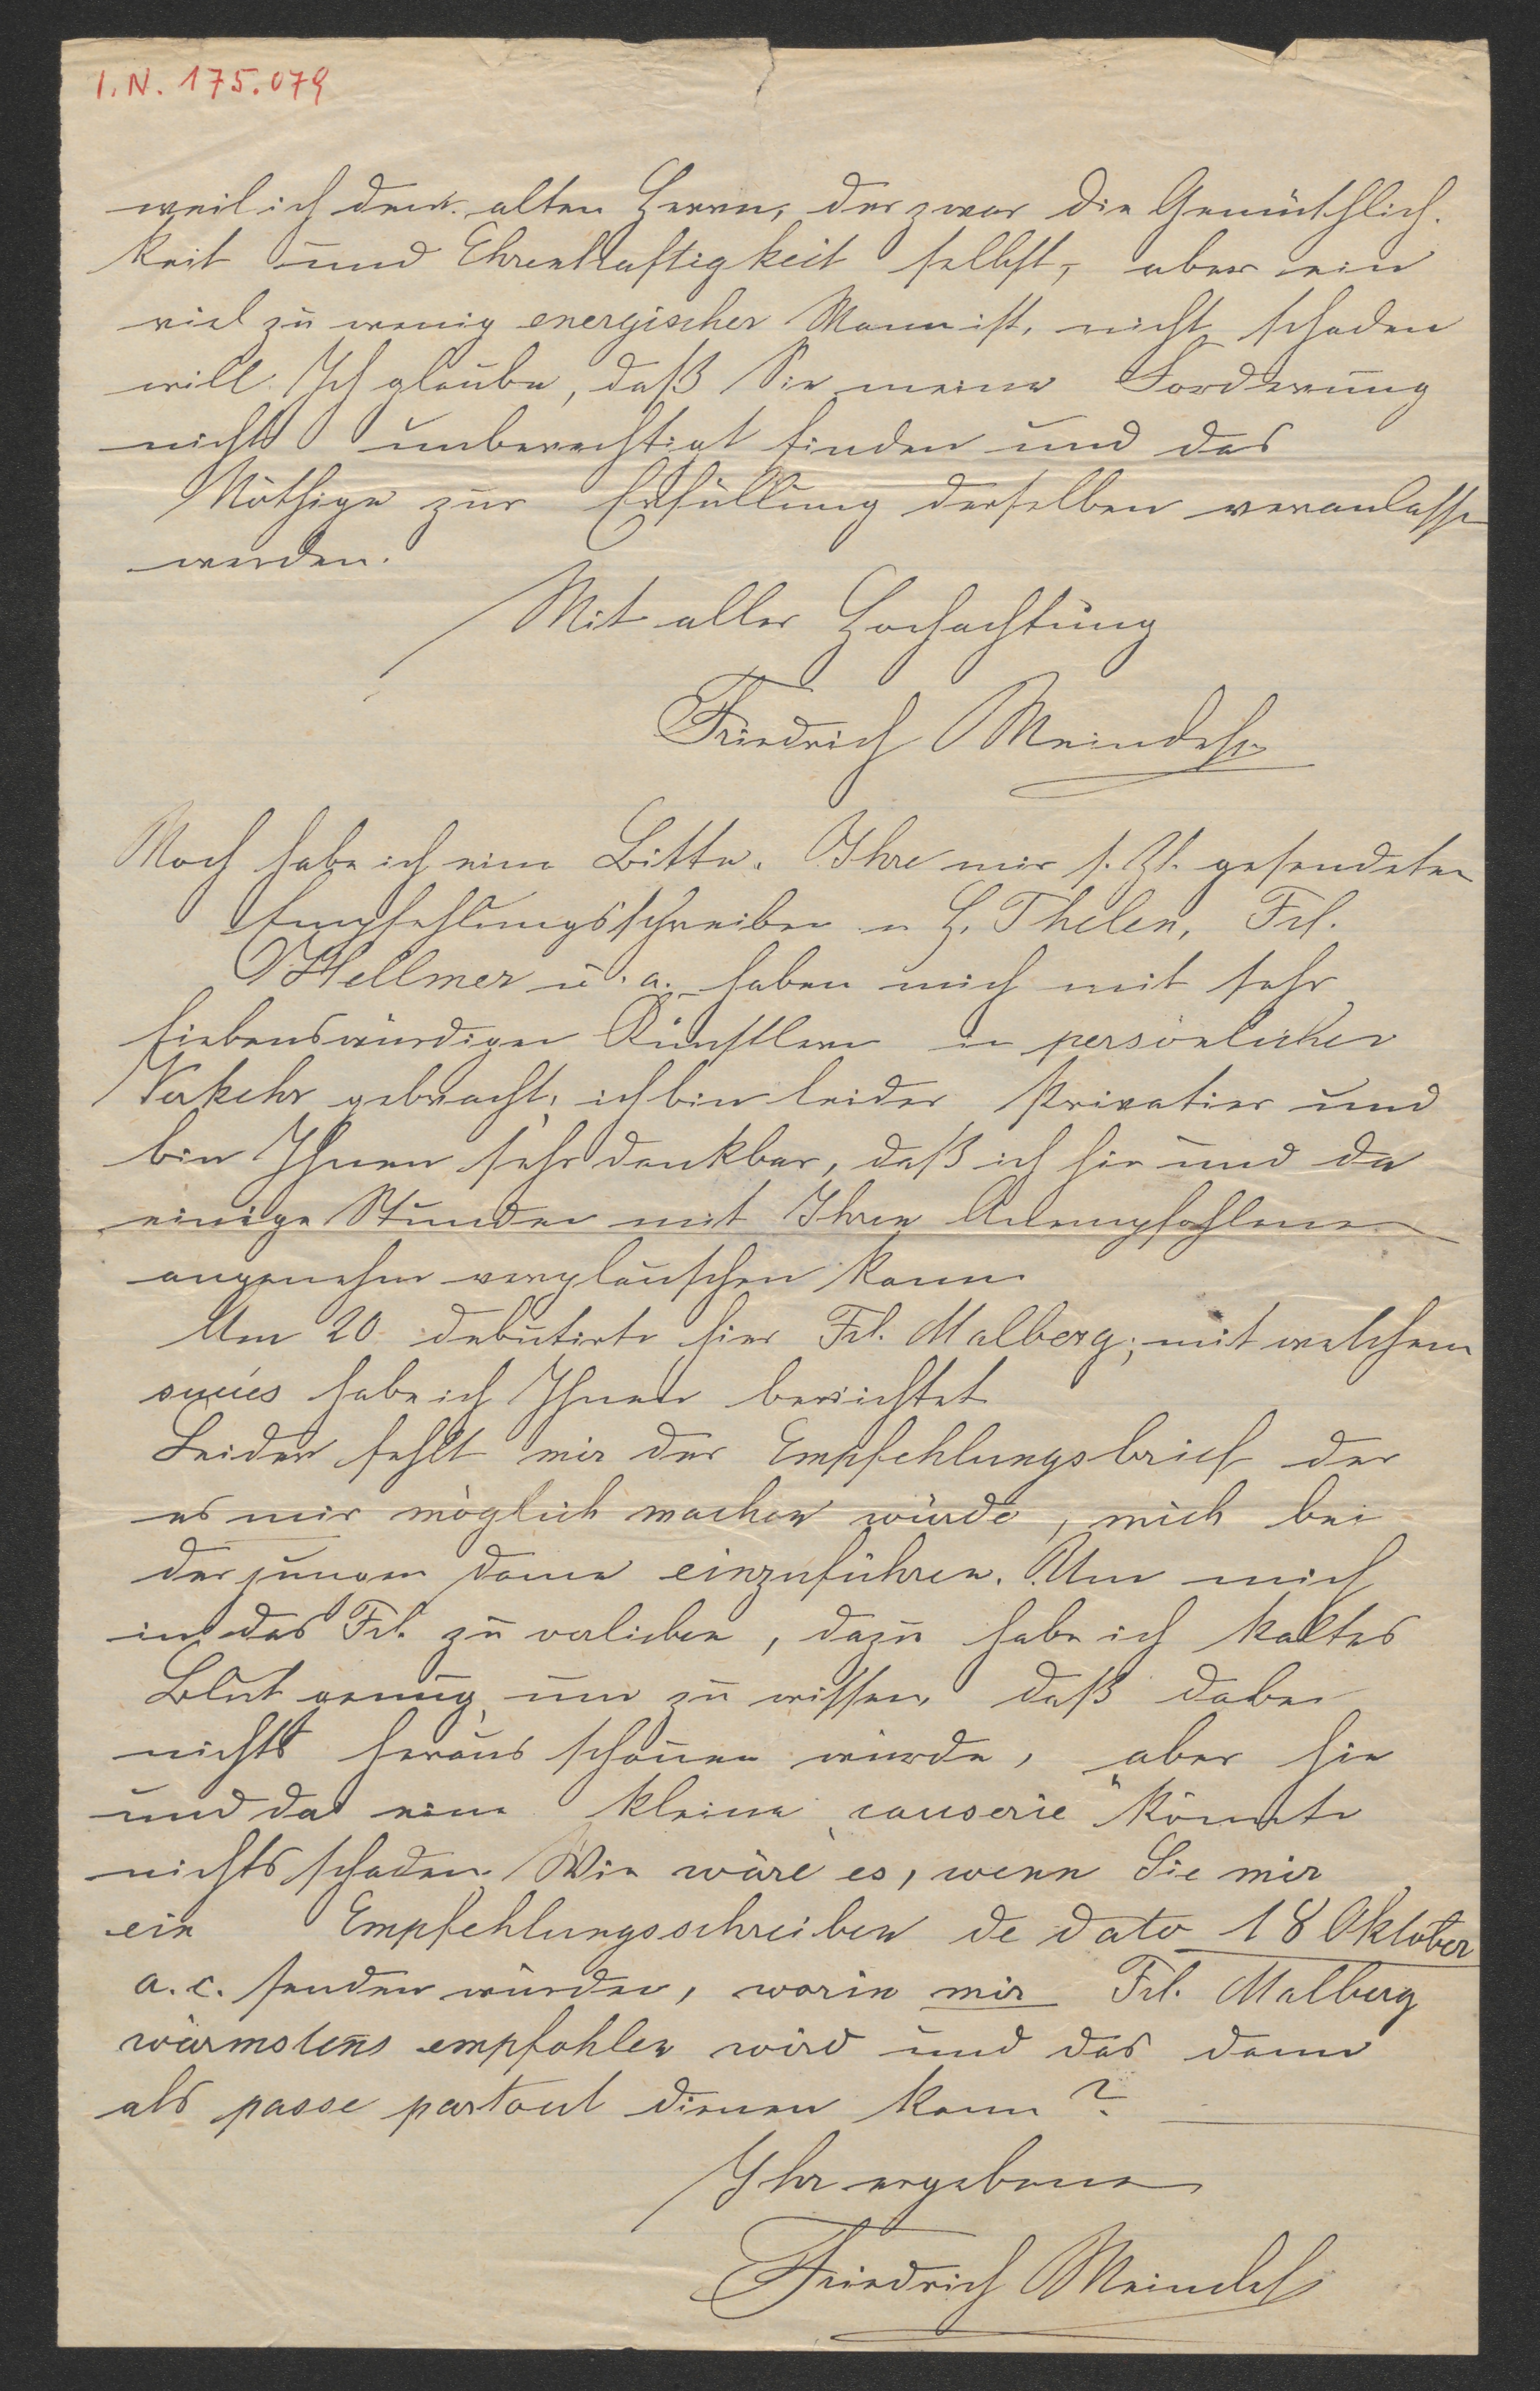 I.N. 175.079
weil ich dem alten Herrn, der zwar die Gemüthlich-
keit und Ehrenhaftigkeit selbst, aber ein
viel zu wenig energischer Mann ist, nicht schaden
will. Ich glaube, daß Sie meine Forderung
nicht unberechtigt finden und das
Nöthige zur Erfüllung derselben veranlassen
werden.
Mit aller Hochachtung
Friedrich
Noch habe ich eine Bitte. Ihre mir s. Zt. gesendeten
Empfehlungsschreiben H. Thelen, Frl.
Hellmer u. a. haben mich mit sehr
liebenswürdigen Künstlern in persönlichen
Verkehr gebracht; ich bin leider Privatier und
bin Ihnen sehr dankbar, daß ich hie und da
einige Stunden mit Ihren Anempfohlenen
angenehm verplauschen kann.
Am 20. debutirte hier Frl. Malberg; mit welchem
succès habe ich Ihnen berichtet.
Leider fehlt mir der Empfehlungsbrief der
es mir möglich machen würde, mich bei
der jungen Dame einzuführen. Um mich
in das Frl. zu verlieben, dazu habe ich kaltes
Blut genug, um zu wissen, daß dabei
nichts herausschauen würde, aber hie
und da eine kleine „causerie" könnte
nichts schaden. Wie wäre es, wenn Sie mir
ein Empfehlungsschreiben de dato 18 Oktober
a. c. senden würden, worin mir Frl. Malberg
wärmstens empfohlen wird und das dann
als passe partout dienen kann?
Ihr ergebener
Friedrich